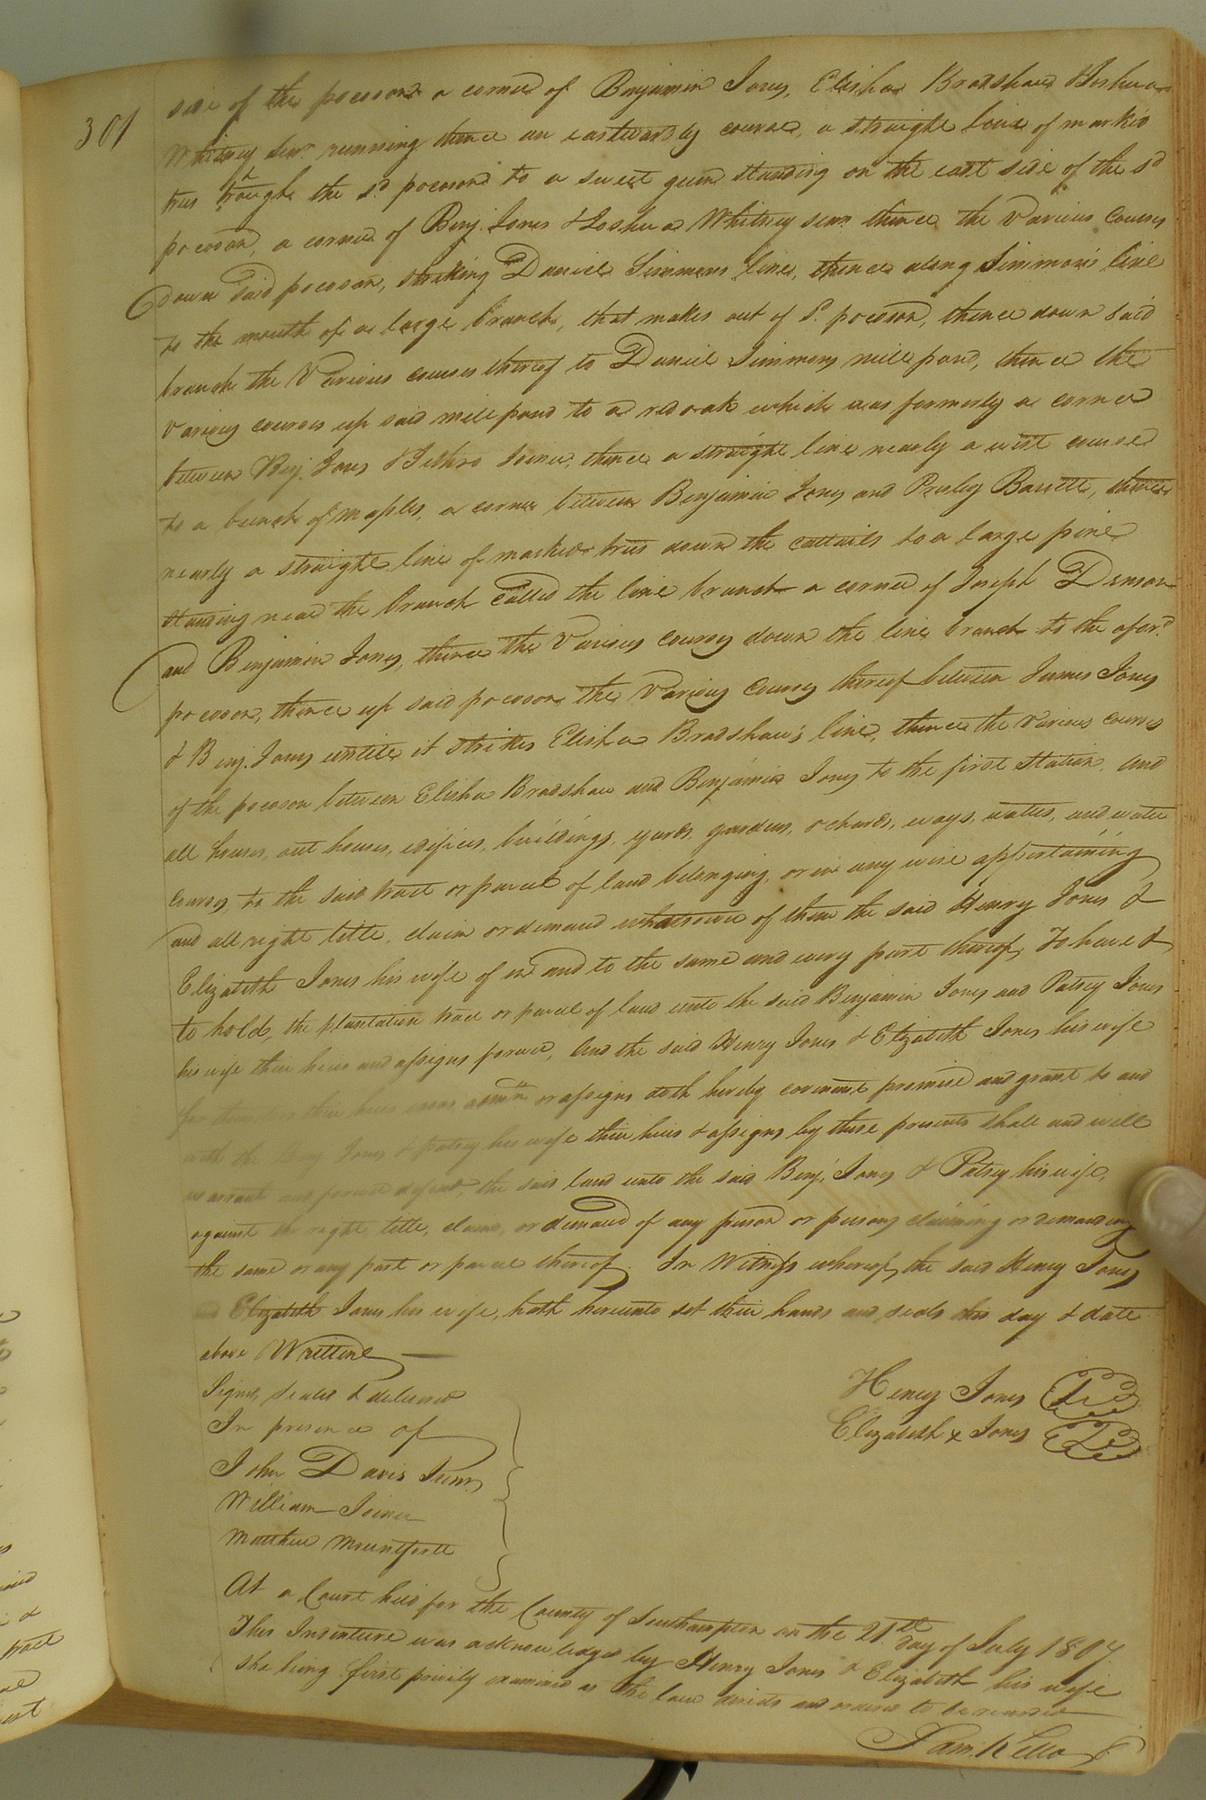 301
side of the pocoson a corner of Benjamin Jones, Elisha Bradshaw & Joshua
Whitney Senr. running thence an eastwardly course, a straight line of marked
trees through the sd. pocoson to a sweet gum standing on the east side of the sd
pocoson, a corner of Benj. Jones & Joshua Whitney senr. thence the various courses
down said pocoson, striking Daniel Simmons line, thence along Simmon's line
to the mouth of a large branch, that makes out of sd. pocoson, thence down said
branch the various courses thereof to Daniel Simmons mill pond, thence the
various courses up said mill pond to a red oak which was formerly a corner
between Benj. Jones & Jethro Joiner, thence a straight line nearly a west course
to a bunch of maples, a corner between Benjamin Jones and Barrett, thence
nearly a straight line of marked trees down the cattails to a large pine
standing near the branch called the line branch a corner of Joseph Denson
and Benjamin Jones, thence the various courses down the line branch to the aford.
pocoson, thence up said pocoson the various courses thereof between James Jones
& Benj. Jones untill it strikes Elisha Bradshaw's line, thence the various courses
of the pocoson between Elisha Bradshaw and Benjamin Jones to the first station, and
all houses, out houses, edifices, buildings, yards, gardens, orchards, ways, watters, and water
courses, to the said tract or parcel of land belonging, or in any wise appertaining
and all right title, claim or demand whatsoever of them the said Henry Jones &
Elizabeth Jones his wife of in and to the same and every part thereof, To have &
to hold, the plantation tract or parcel of land unto the said Benjamin Jones and Patsey Jones
his wife their heirs and assigns forever, And the said Henry Jones & Elizabeth Jones his wife
for their heirs admrs. or assigns doth hereby covenant promise and grant to and
with the Benj Jones & patsey his wife their heirs & assigns by these presents shall and will
warrant and forever defend, the said land unto the said Benj. Jones & Patsey his wife,
against the right, title, claim, or demand of any person or persons claiming or demanding
the same or any part or parcel thereof. In Witness whereof, the said Henry Jones
Elizabeth Jones his wife, hath hereunto set their hands and seals this day & date
above Writtine
Signed, sealed & delivered
In presence of
John Davis Junr.
William Joiner
Matthew Mountfortt
Henry Jones
Elizabeth x Jones
At a Court held for the County of Southampton on the 21th day of July 1807
This Indenture was acknowledged by Henry Jones & Elizabeth his wife
she being first privily examined as the law directs and ordered to be recorded
Sam. Kello